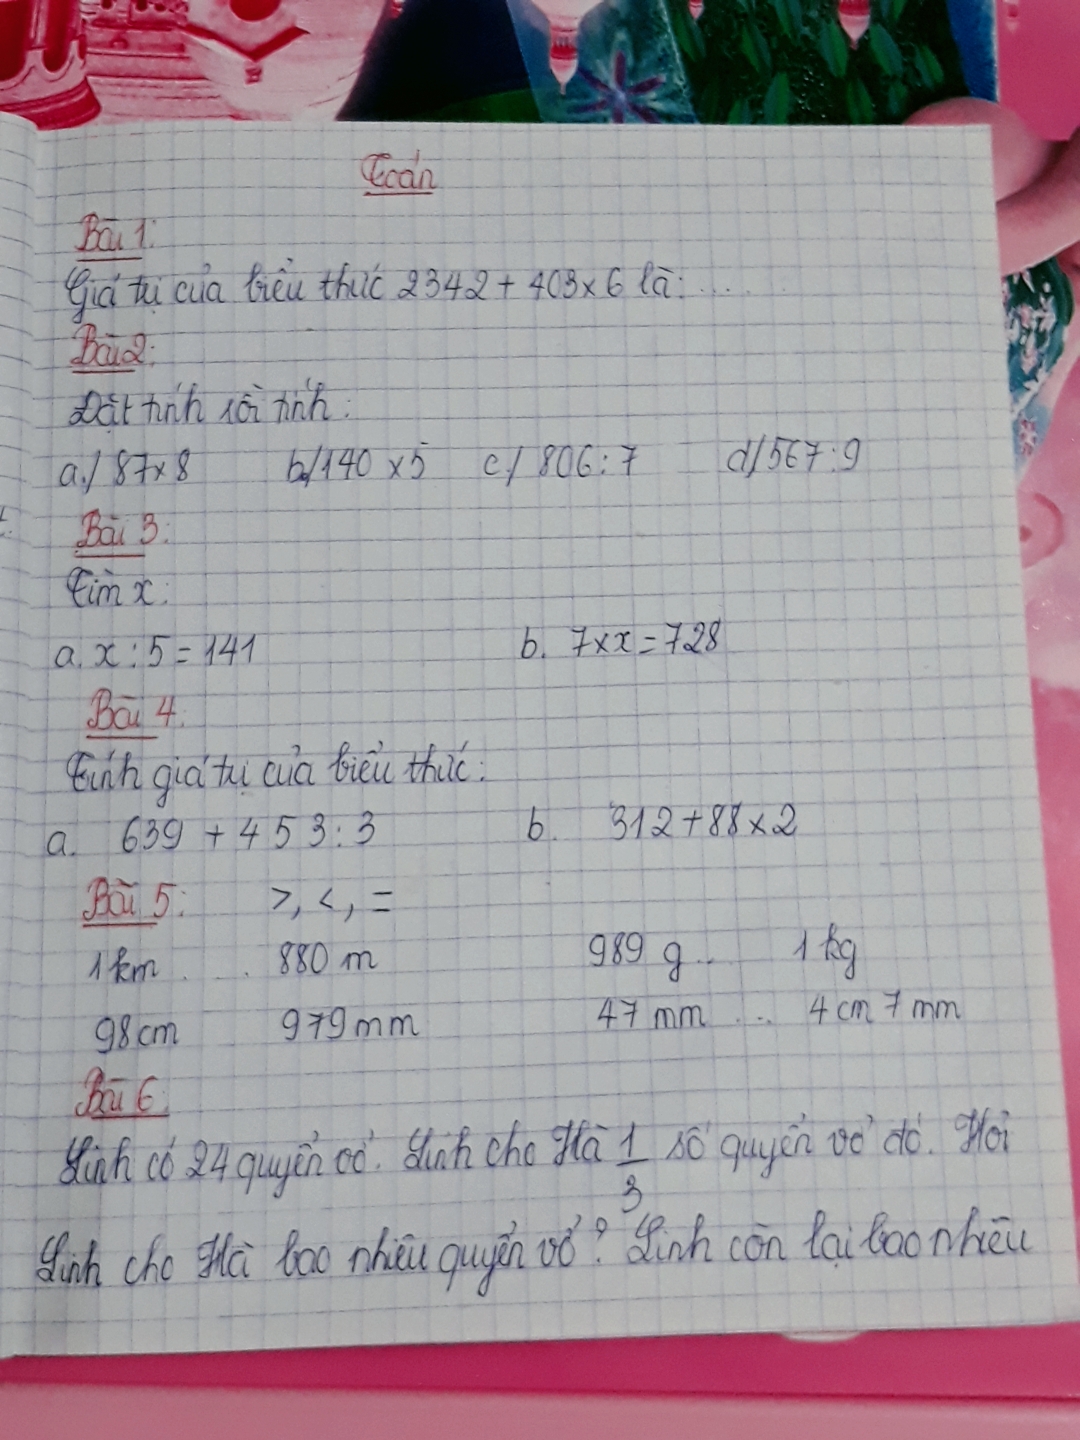 Toán
Bài 1:
Giá trị của biểu thức 2342 + 403 x 6 là: ....
Bài 2:
Đặt tính rồi tính:
a./ 87 x 8 b/ 140 x 5 c/ 806 : 7 d/ 567 : 9
Bài 3:
Tìm x:
a. x : 5 = 141 b. 7 x x = 728
Bài 4:
Tính giá trị của biểu thức:
a. 639 + 453 : 3 b. 312 + 88 x 2
Bài 5: >, <, =
1km .... 880 m 989 g .. 1 kg
98cm 979mm 47 mm ... 4 cm 7 mm
Bài 6
Linh có 24 quyển vở. Linh cho Hà 1/3 số quyển vở đó. Hỏi
Linh cho Hà bao nhiêu quyển vở? Linh còn lại bao nhiêu